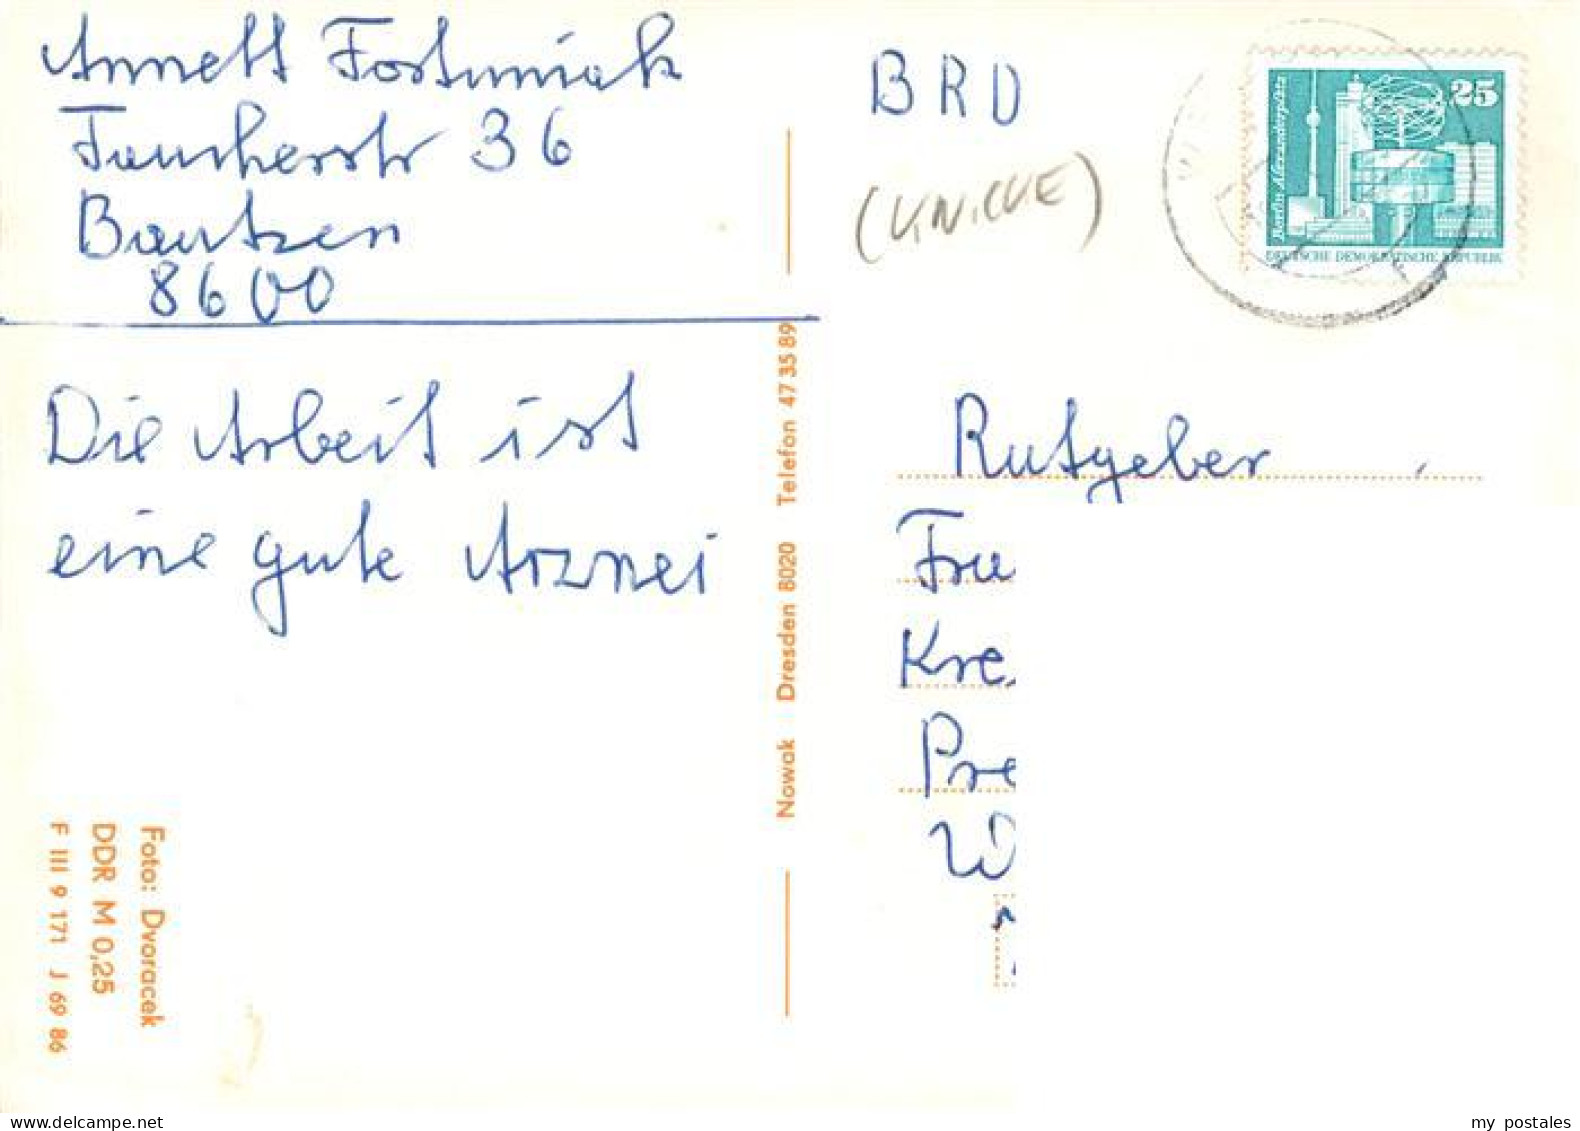 Annett Fostuniak
Taucherstr 36
Bautzen
8600
Die Arbeit ist
eine gute Arznei
Foto: Dvoracek
DDR M 0,25
F III 9 171 J 69 86
Nowak Dresden 8020 Telefon 47 35 89
BRD
(KNICKE)
25
Berlin Alexanderplatz
DEUTSCHE DEMOKRATISCHE REPUBLIK
Rutgeber
my postales